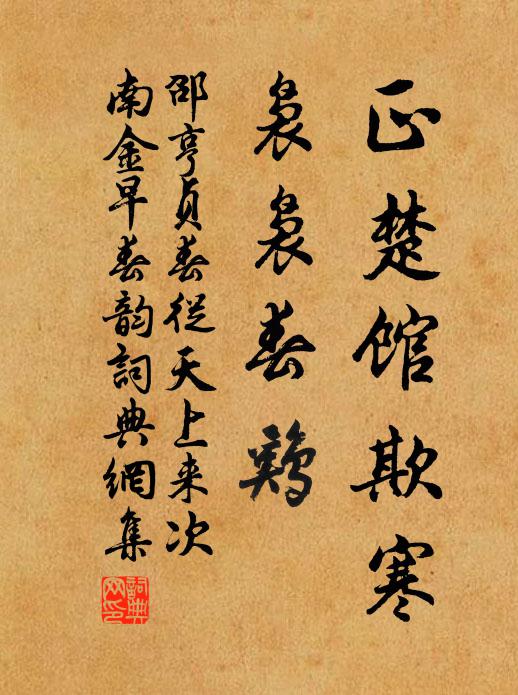 正楚馆欺寒
袅袅春鸡
邵亨贞春從天上来次
南金早春韵詞典網集
詞典网印